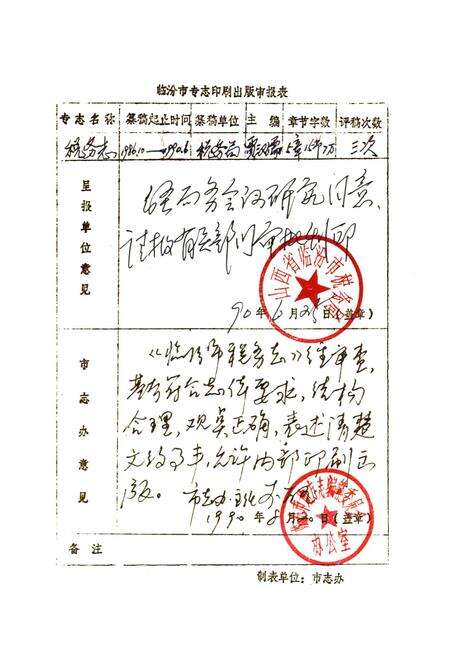 临汾市专志印刷出版审报表
专志名称 纂稿起止时间 纂稿单位 主编 章节字数 评稿次数
税务志 1986.10—1990.6 税务局 三次
呈报单位意见
经局务会议研究同意,
请报有关部门审批付印
山西省临汾市税务局
90年6月25日(盖章)
市志办意见
《临汾市税务志》经审查,
基本符合志体要求,结构
合理,观点正确,表述清楚
允许内部印刷出
版。 市志办主任
1990年8月20日(盖章)
办公室
备注
制表单位:市志办